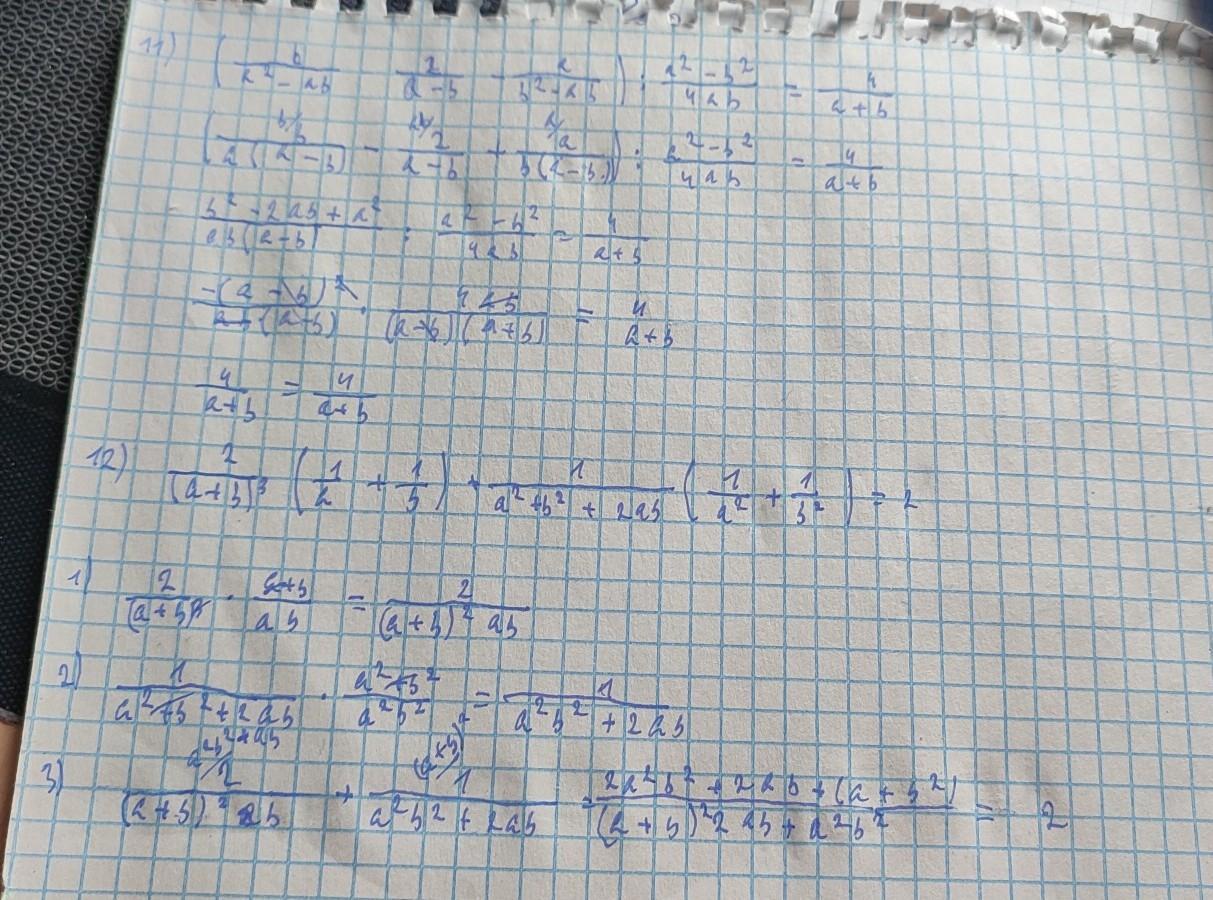 11) ( b / a² - ab - 2 / a - b - a / b² - ab ) : a² - b² / 4ab = 4 / a + b
( b/ b / a ( a - b ) - ab/ 2 / a - b + a/ a / b ( a - b ) ) : a² - b² / 4ab = 4 / a + b
b² - 2ab + a² / ab ( a - b ) : a² - b² / 4ab = 4 / a + b
-( a - b )² / ab ( a - b ) · 4ab / ( a - b ) ( a + b ) = 4 / a + b
4 / a + b = 4 / a + b
12) 2 / ( a + b )³ ( 1 / a + 1 / b ) + 1 / a² + b² + 2ab ( 1 / a² + 1 / b² ) = 2
1) 2 / ( a + b )³ · a + b / ab = 2 / ( a + b )² ab
2) 1 / a² + b² + 2ab · a² + b² / a²b² = 1 / a²b² + 2ab
3) a²b² + ab/ 2 / ( a + b )² ab + 1 / a²b² + 2ab = 2a²b² + 2ab + ( a + b² ) / ( a + b )² 2ab + a²b² = 2